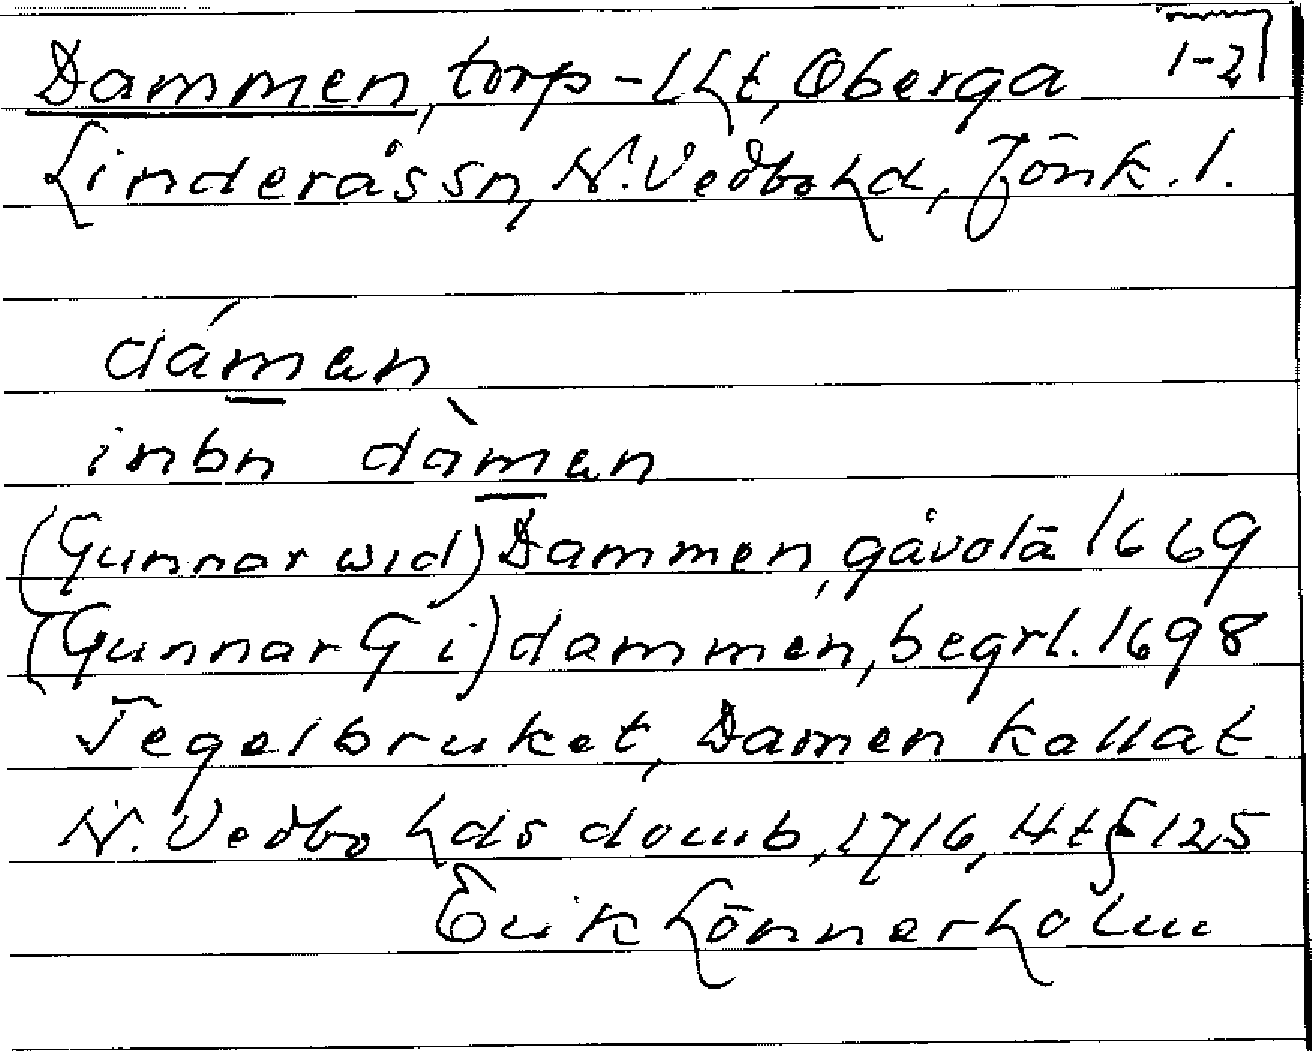 1-2
Dammen, torp-lht, Oberga
Linderås sn, N. Vedbo hd, Jönk. l.
dáman
inbn dàman
(Gunnar wid) Dammen, gåvolä 1669
(Gunnar G i) dammen, begrl. 1698
Tegelbruket, Damen kallat
N. Vedbo hds domb, 1716, Ht § 125
Erik Lönnerholm